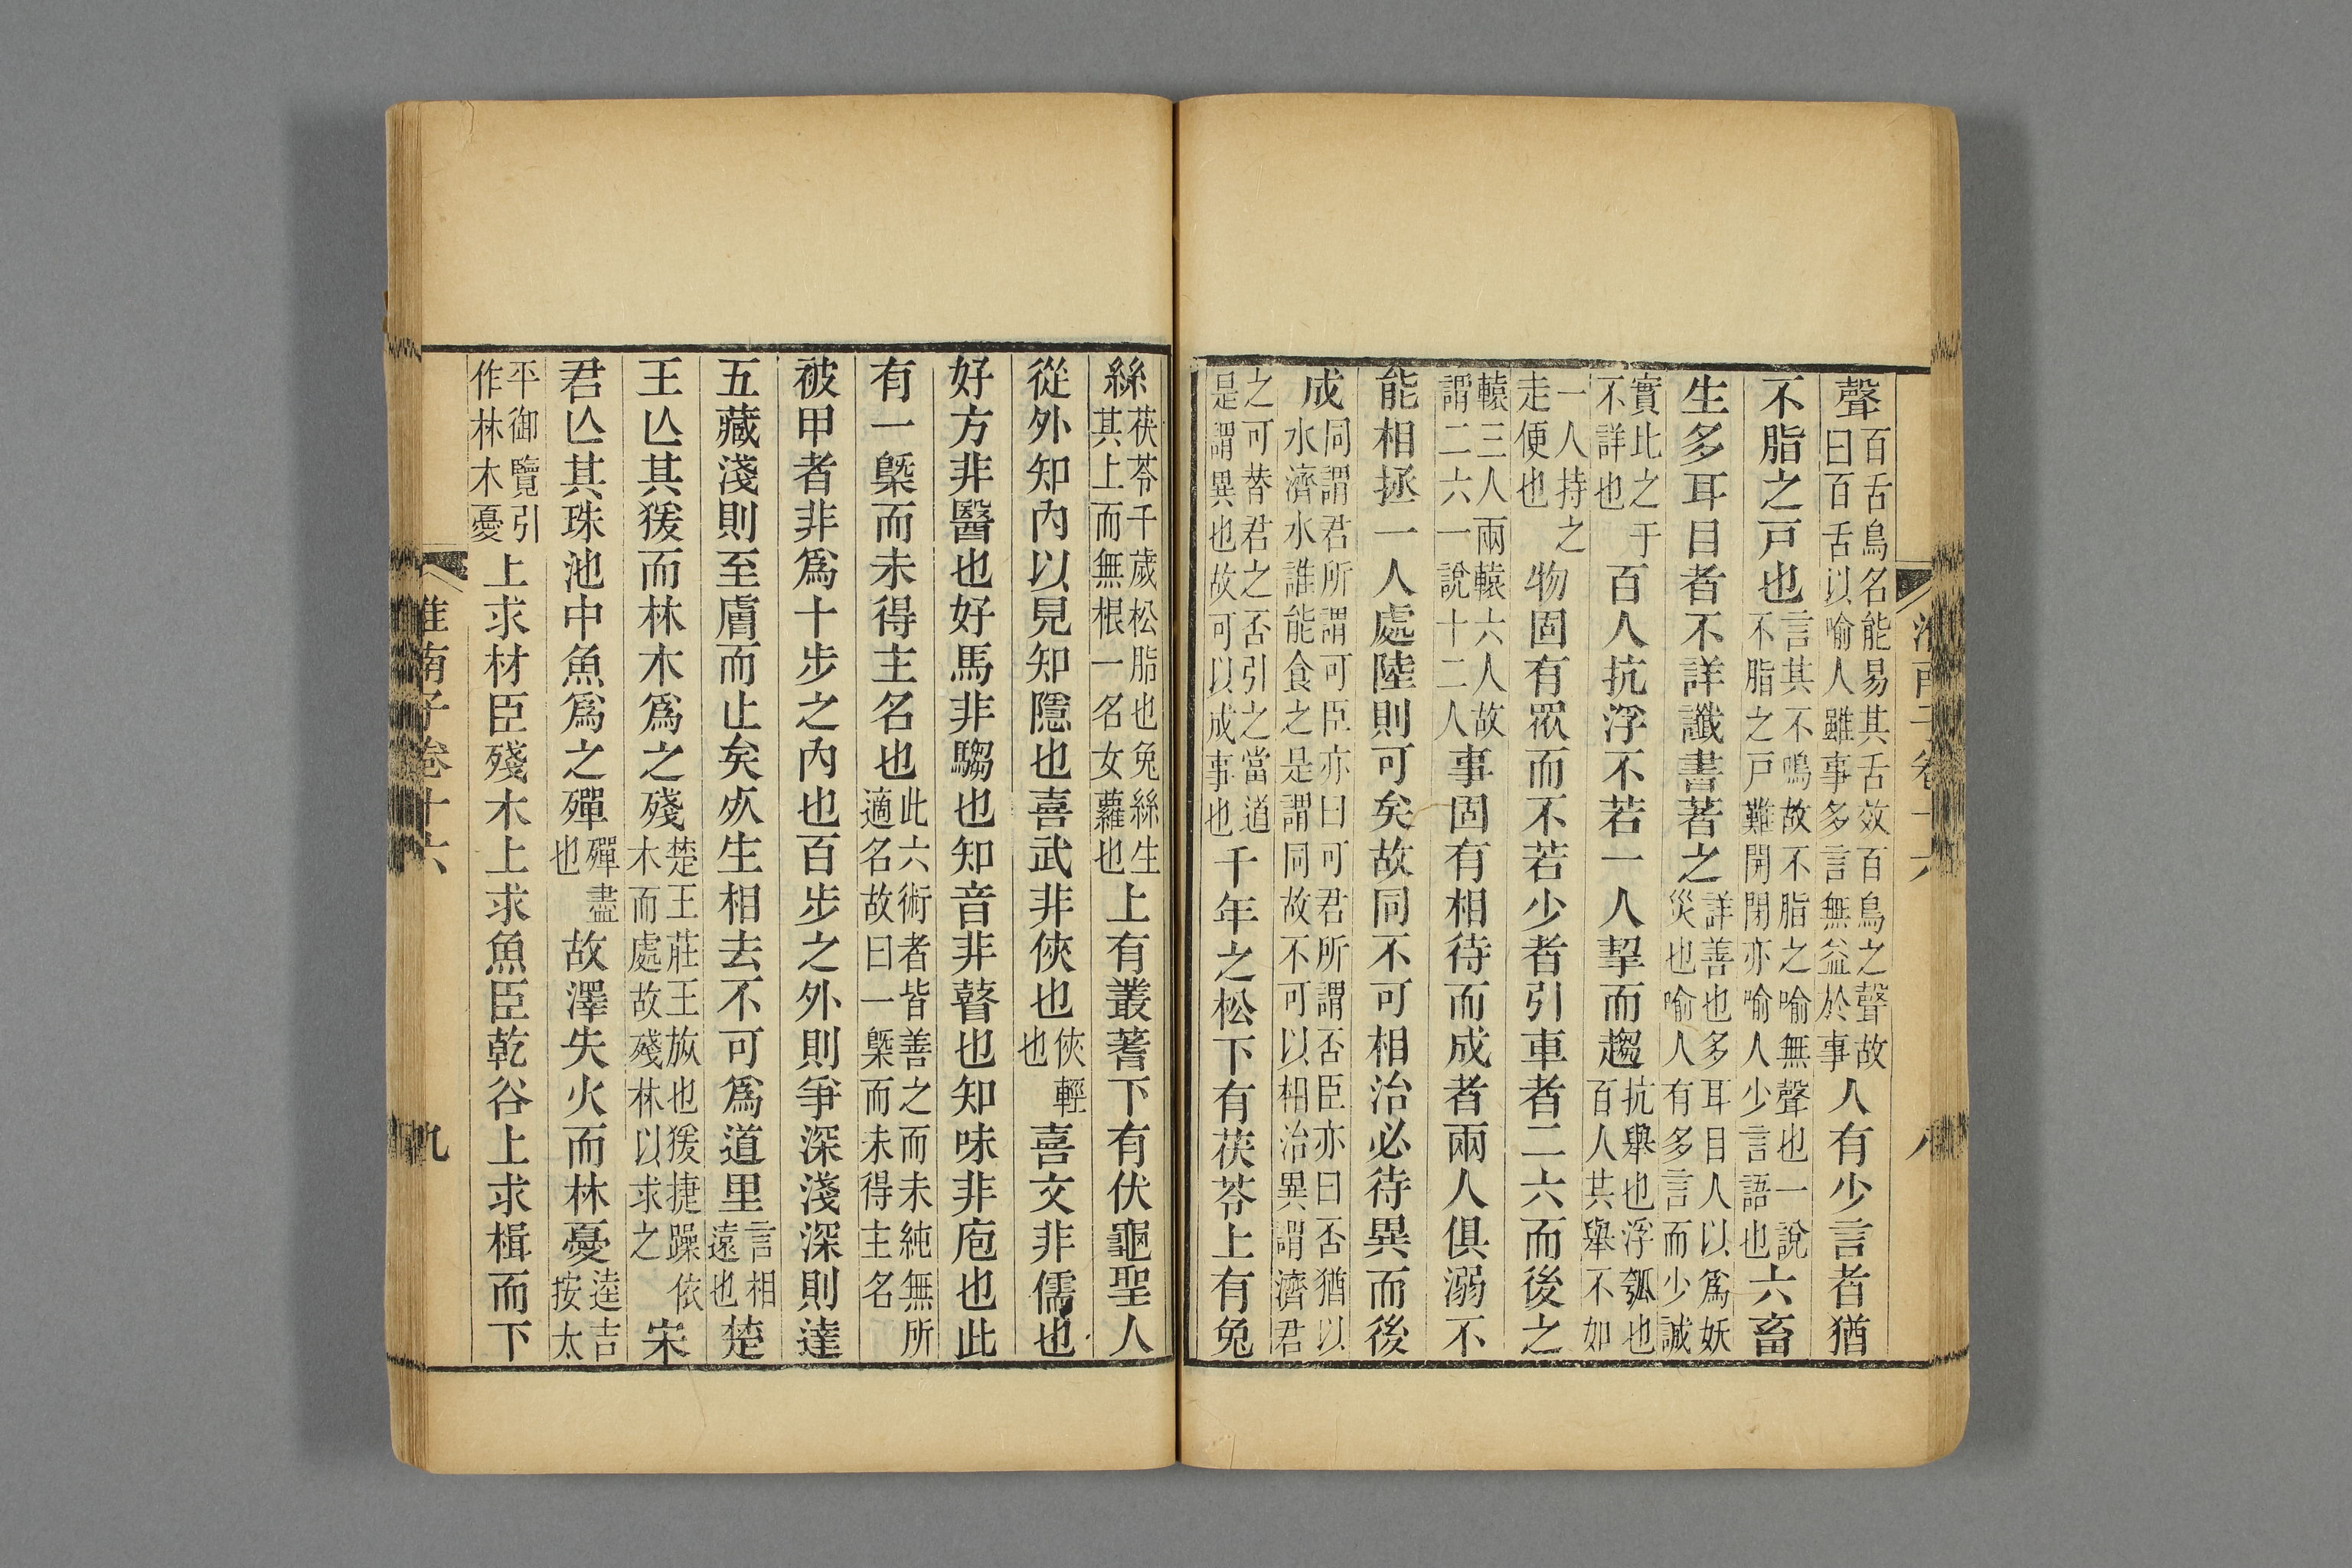 聲百舌鳥名能易其舌效百鳥之聲故曰百舌以喻人雖事多言無益於事人有少言者猶
不脂之戸也言其不鳴故不脂之喻無聲也一說不脂之戸難開閉亦喻人少言語也六畜
生多耳目者不詳讖書著之詳善也多耳目人以爲妖災也喻人有多言而少誠
實此之于不詳也百人抗浮不若一人挈而趨抗舉也浮瓠也百人其舉不如
一人持之走便也物固有眾而不若少者引車者二六而後之
轅三人兩轅六人故謂二六一說十二人事固有相待而成者兩人俱溺不
能相拯一人處陸則可矣故同不可相治必待異而後
成同謂君所謂可臣亦曰可君所謂否臣亦曰否猶以水濟水誰能食之是謂同故不可以相治異謂濟君
之可替君之否引之當道是謂異也故可以成事也千年之松下有茯苓上有兔
淮南子卷十六
八
絲茯苓千歲松脂也兔絲生其上而無根一名女蘿也上有叢蓍下有伏龜聖人
從外知內以見知隱也喜武非俠也俠輕也喜文非儒也
好方非醫也好馬非騶也知音非瞽也知味非庖也此
有一槩而未得主名也此六術者皆善之而未純無所適名故曰一槩而未得主名
被甲者非爲十步之內也百步之外則爭深淺深則達
五藏淺則至膚而止矣㱙生相去不可爲道里言相遠也楚
王亾其猨而林木爲之殘楚王莊王放也猨捷躁依木而處故殘林以求之宋
君亾其珠池中魚爲之殫殫盡也故澤失火而林憂逵吉按太
平御覽引作林木憂上求材臣殘木上求魚臣乾谷上求楫而下
淮南子卷十六
九